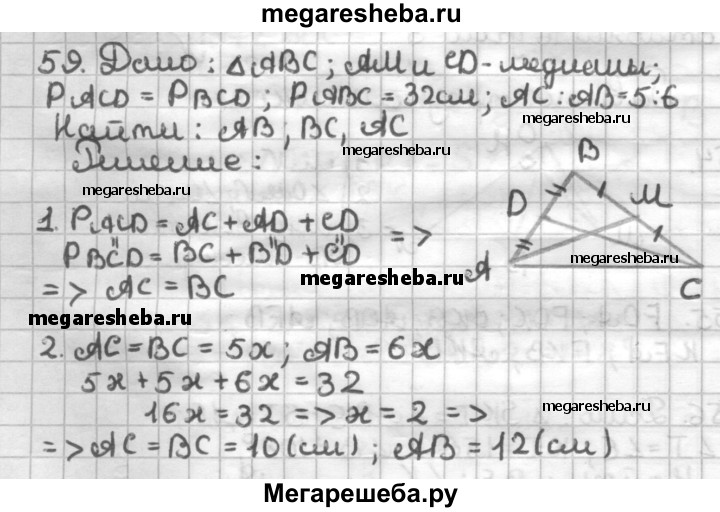 megaresheba.ru
59. Дано: ΔABC; AM и CD-медианы;
PACD = PBCD; PABC = 32см; AC:AB=5:6
Найти: AB; BC, AC
megaresheba.ru
megaresheba.ru
Решение:
megaresheba.ru
B
D
M
A
C
1. PACD = AC + AD + CD
" " "
PBCD = BC + BD + CD => 
megaresheba.ru
megaresheba.ru
=> AC = BC
megaresheba.ru
2. AC = BC = 5x; AB = 6x
5x + 5x + 6x = 32
16x = 32 => x = 2 =>
megaresheba.ru
=> AC = BC = 10 (см); AB = 12 (см)
Мегарешеба.ру